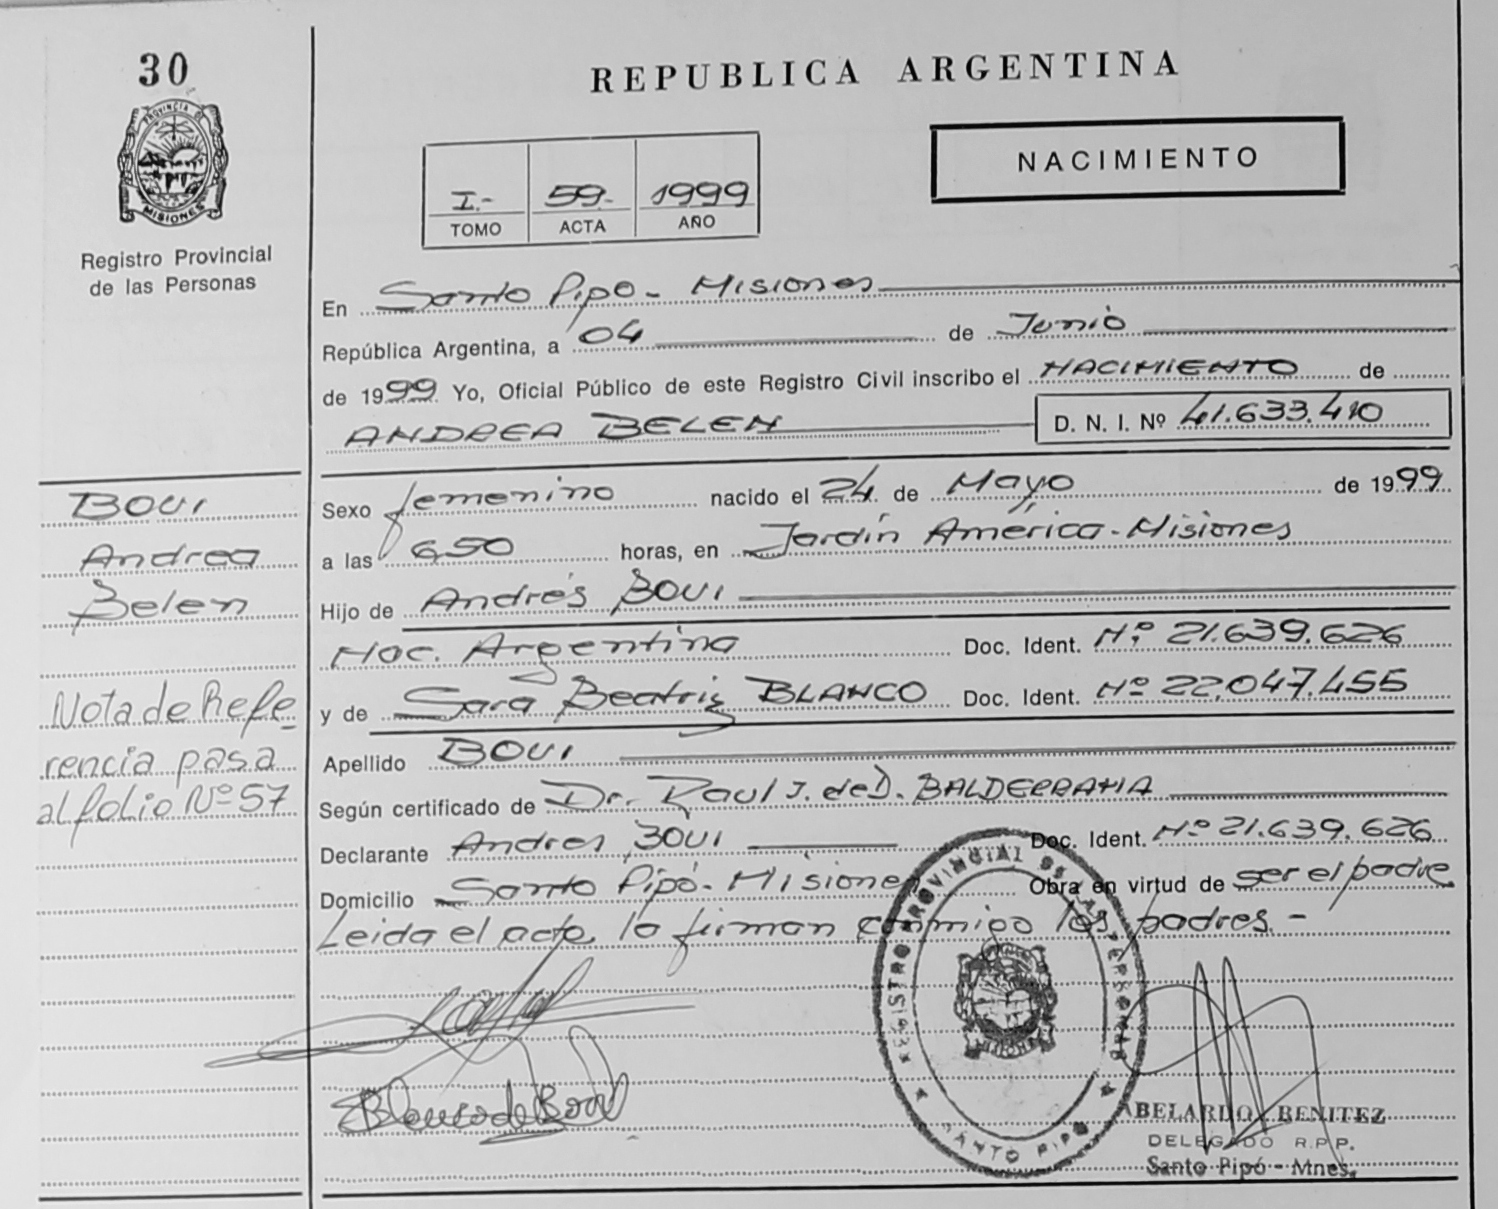 30
REPUBLICA ARGENTINA
PROVINCIA DE
MISIONES
Registro Provincial
de las Personas
I.- 59.- 1999
TOMO ACTA AÑO
NACIMIENTO
En Santo Pipo - Misiones
República Argentina, a 04 de Junio
de 1999 Yo, Oficial Público de este Registro Civil inscribo el NACIMIENTO de
ANDREA BELEN D. N. I. Nº 41.633.410
BOVI
Andrea
Belen
Nota de Refe-
rencia pasa
al folio Nº 57
Sexo femenino nacido el 24 de Mayo de 1999
a las 6,50 horas, en Jardín América - Misiones
Hijo de Andrés BOVI
Nac. Argentina Doc. Ident. Nº 21.639.626
y de Sara Beatriz BLANCO Doc. Ident. Nº 22.047.455
Apellido BOVI
Según certificado de Dr. Raul J. de D. BALDERRAMA
Declarante Andres BOVI Doc. Ident. Nº 21.639.626
Domicilio Santo Pipó - Misiones Obra en virtud de ser el padre
Leida el acta, la firman conmigo los padres -
REGISTRO PROVINCIAL DE LAS PERSONAS
SANTO PIPO
ABELARDO BENITEZ
DELEGADO R.P.P.
Santo Pipó - Mnes.